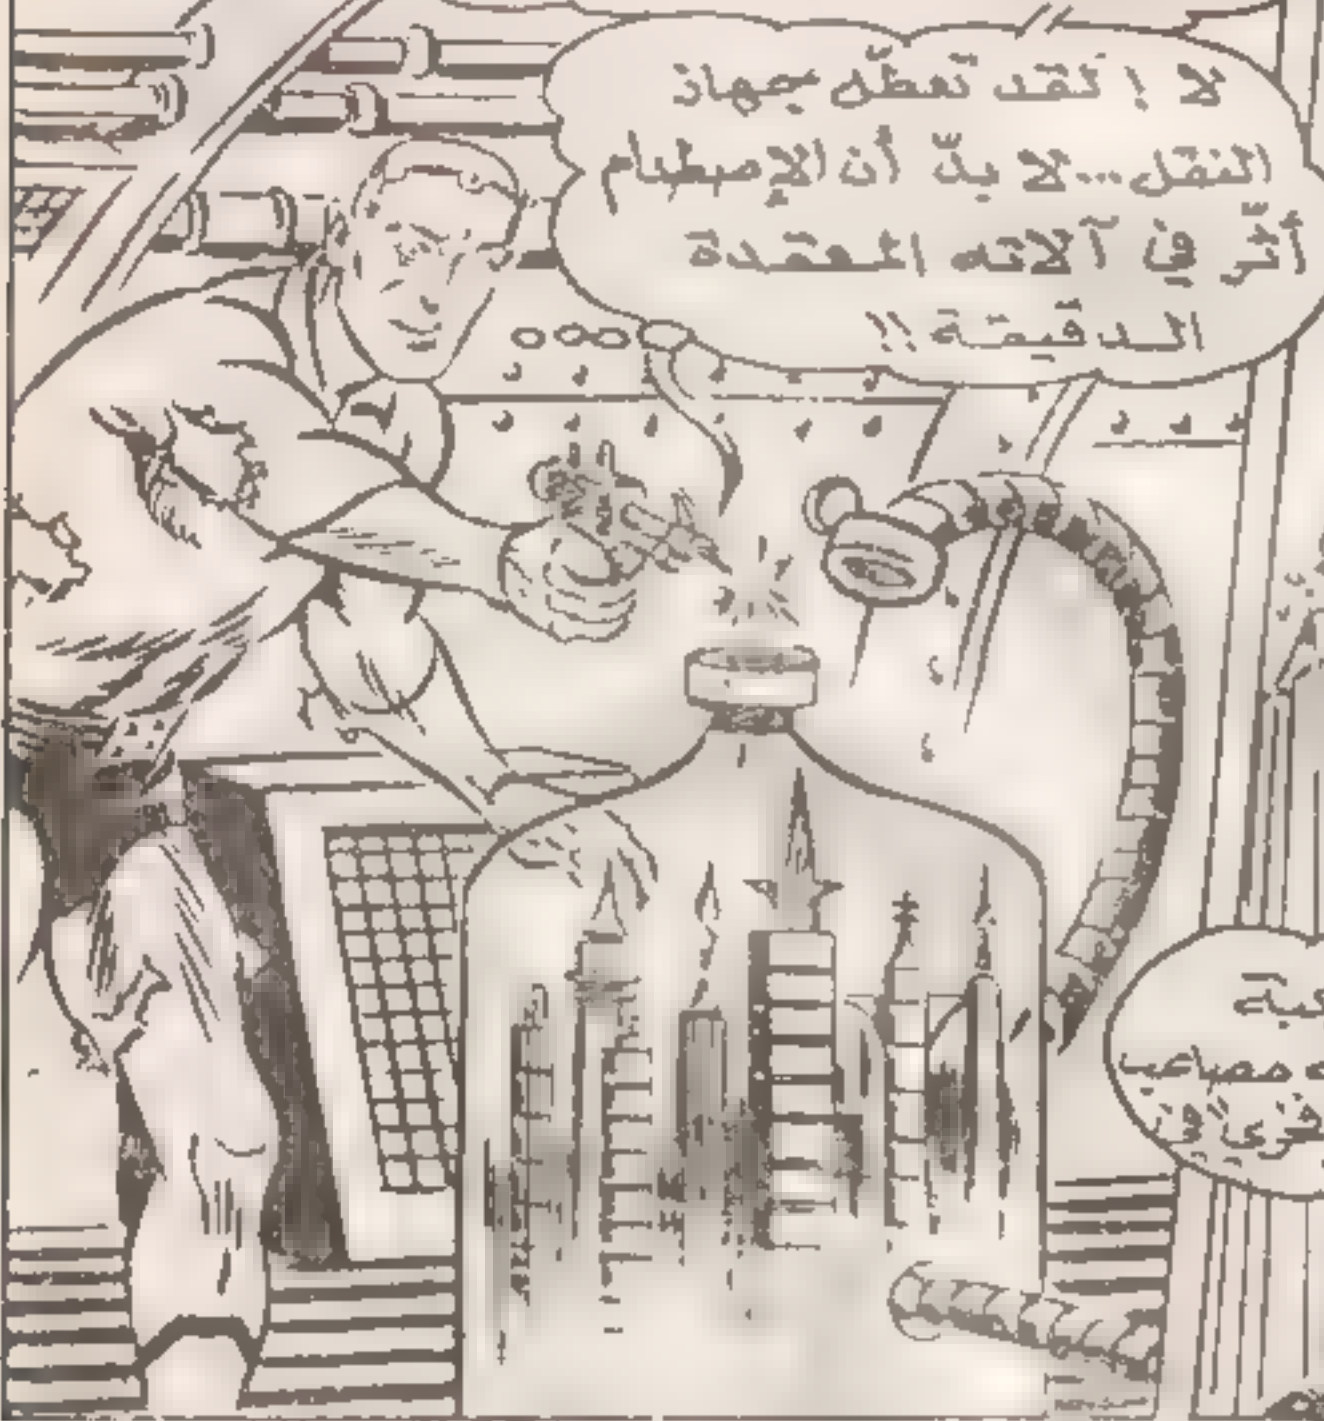 لا ! لقد تعطّل جهاز
النقل...لا بدّ أن الإصطدام
أثّر في آلاته المعقدة
الدقيقة !!
مصاعب